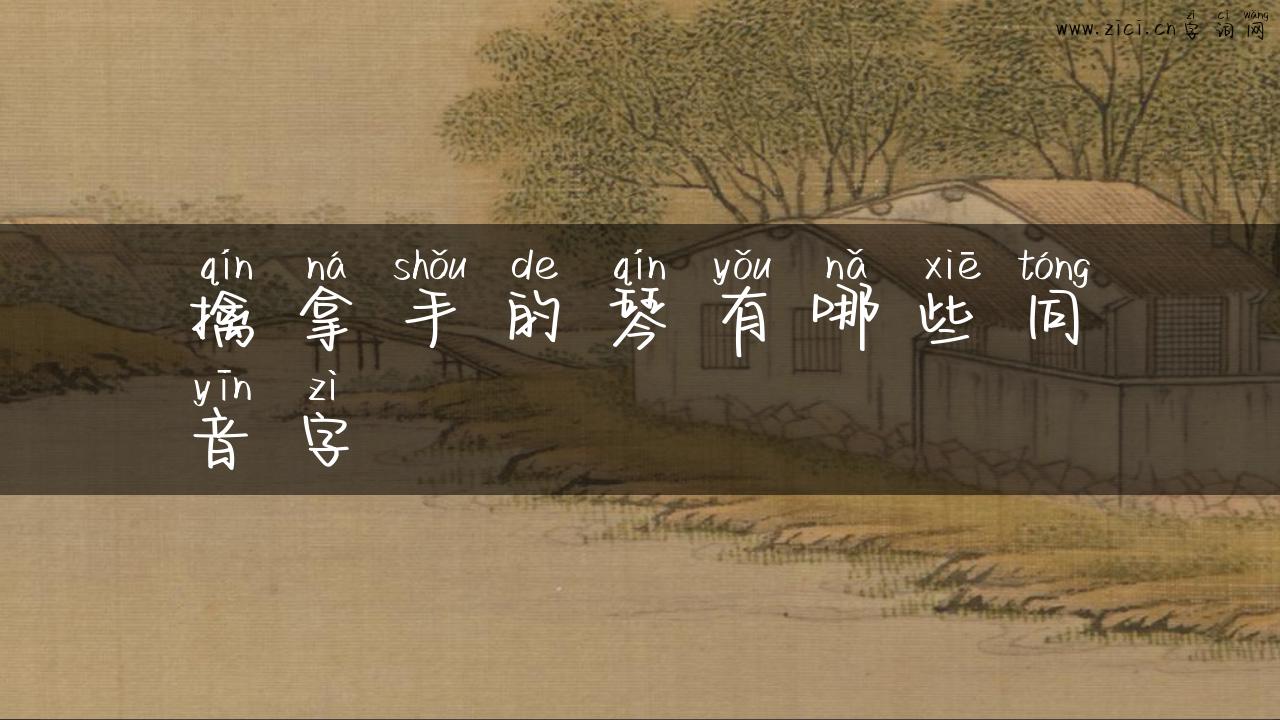 zì cí wǎng
www.zici.cn字词网
qín ná shǒu de qín yǒu nǎ xiē tóng
擒拿手的琴有哪些同
yīn zì
音字